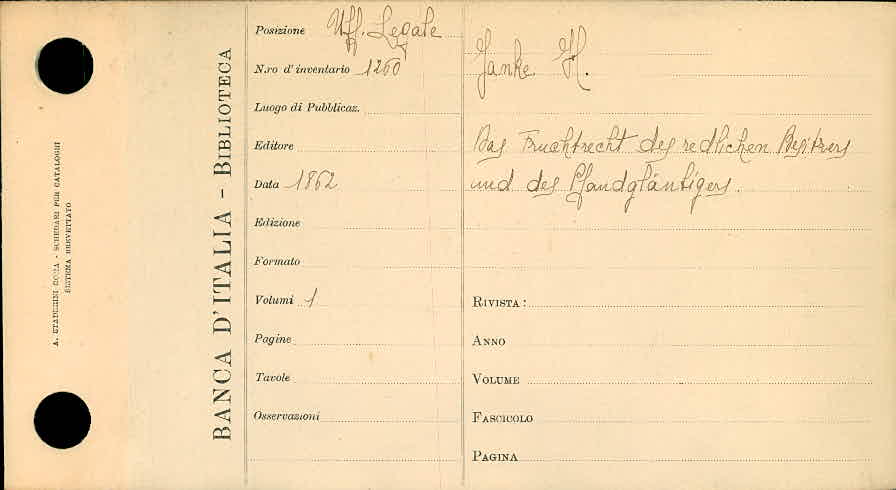 A. STADERINI ROMA - SCHEDARI PER CATALOGHI
SISTEMA BREVETTATO
BANCA D'ITALIA - BIBLIOTECA
Posizione Uff. Legale
N.ro d'inventario 1260
Luogo di Pubblicaz.
Editore
Data 1862
Edizione
Formato
Volumi 1
Pagine
Tavole
Osservazioni
Janke H.
Das Fruchtrecht des redlichen Besitzers
und des Pfandgläubigers.
RIVISTA :
ANNO
VOLUME
FASCICOLO
PAGINA